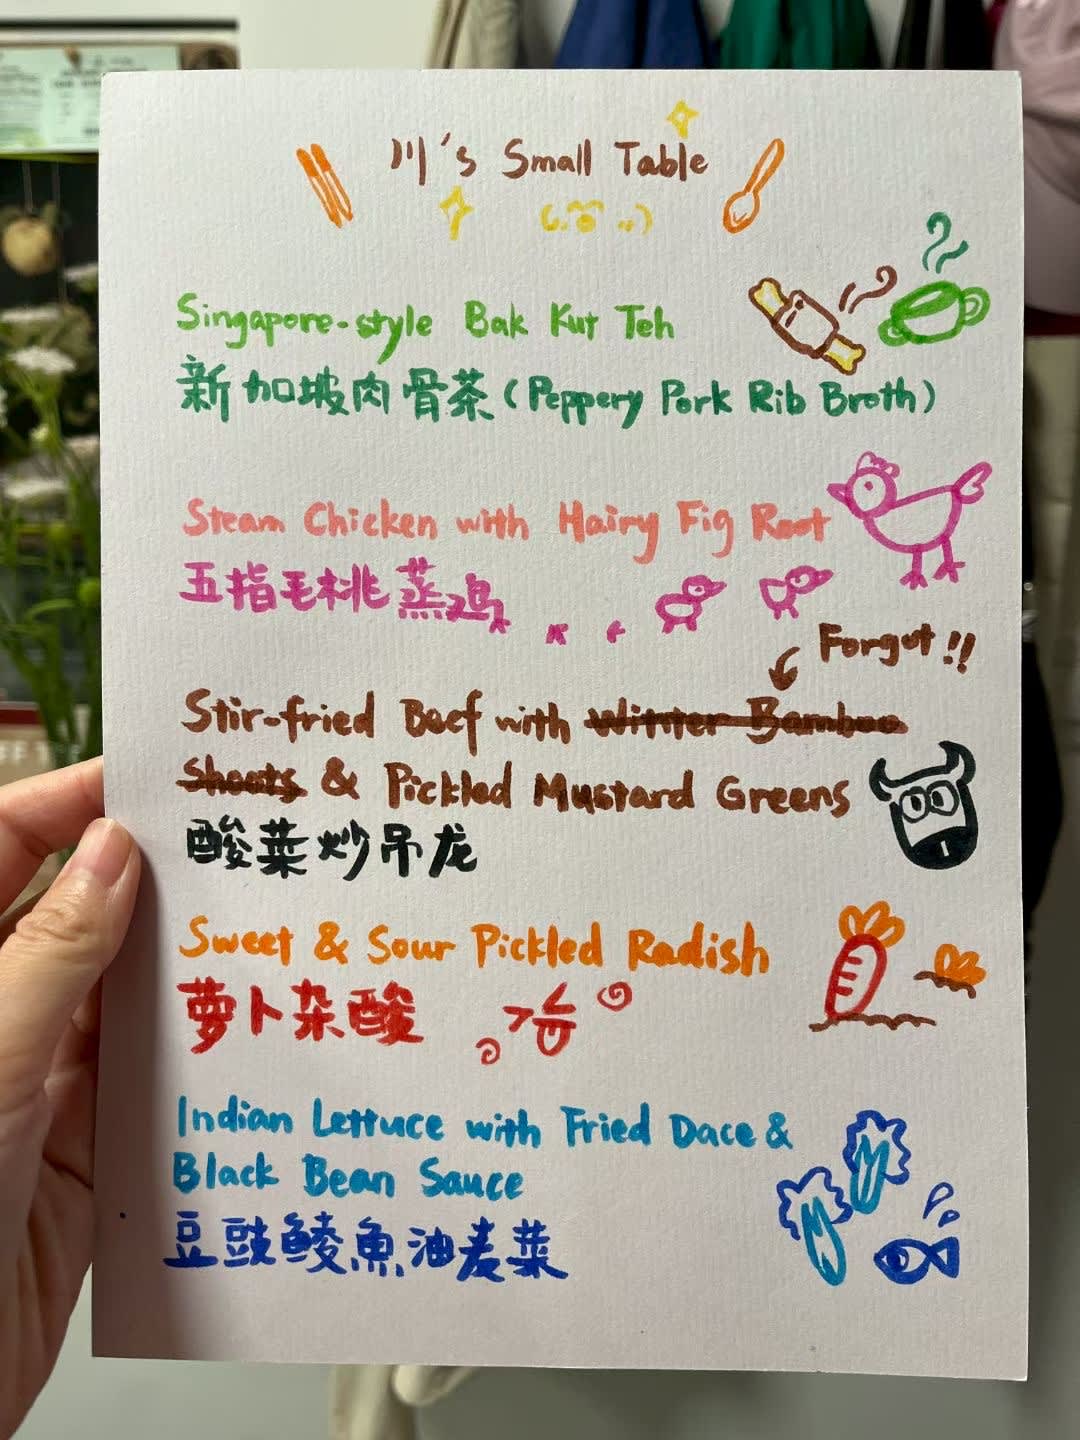 川's Small Table
Singapore-style Bak Kut Teh
新加坡肉骨茶 (Peppery Pork Rib Broth)
Steam Chicken with Hairy Fig Root
五指毛桃蒸鸡
Forgot!!
Stir-fried Beef with Winter Bamboo
Shoots & Pickled Mustard Greens
酸菜炒吊龙
Sweet & Sour Pickled Radish
萝卜杂酸
Indian Lettuce with Fried Dace &
Black Bean Sauce
豆豉鲮魚油麦菜